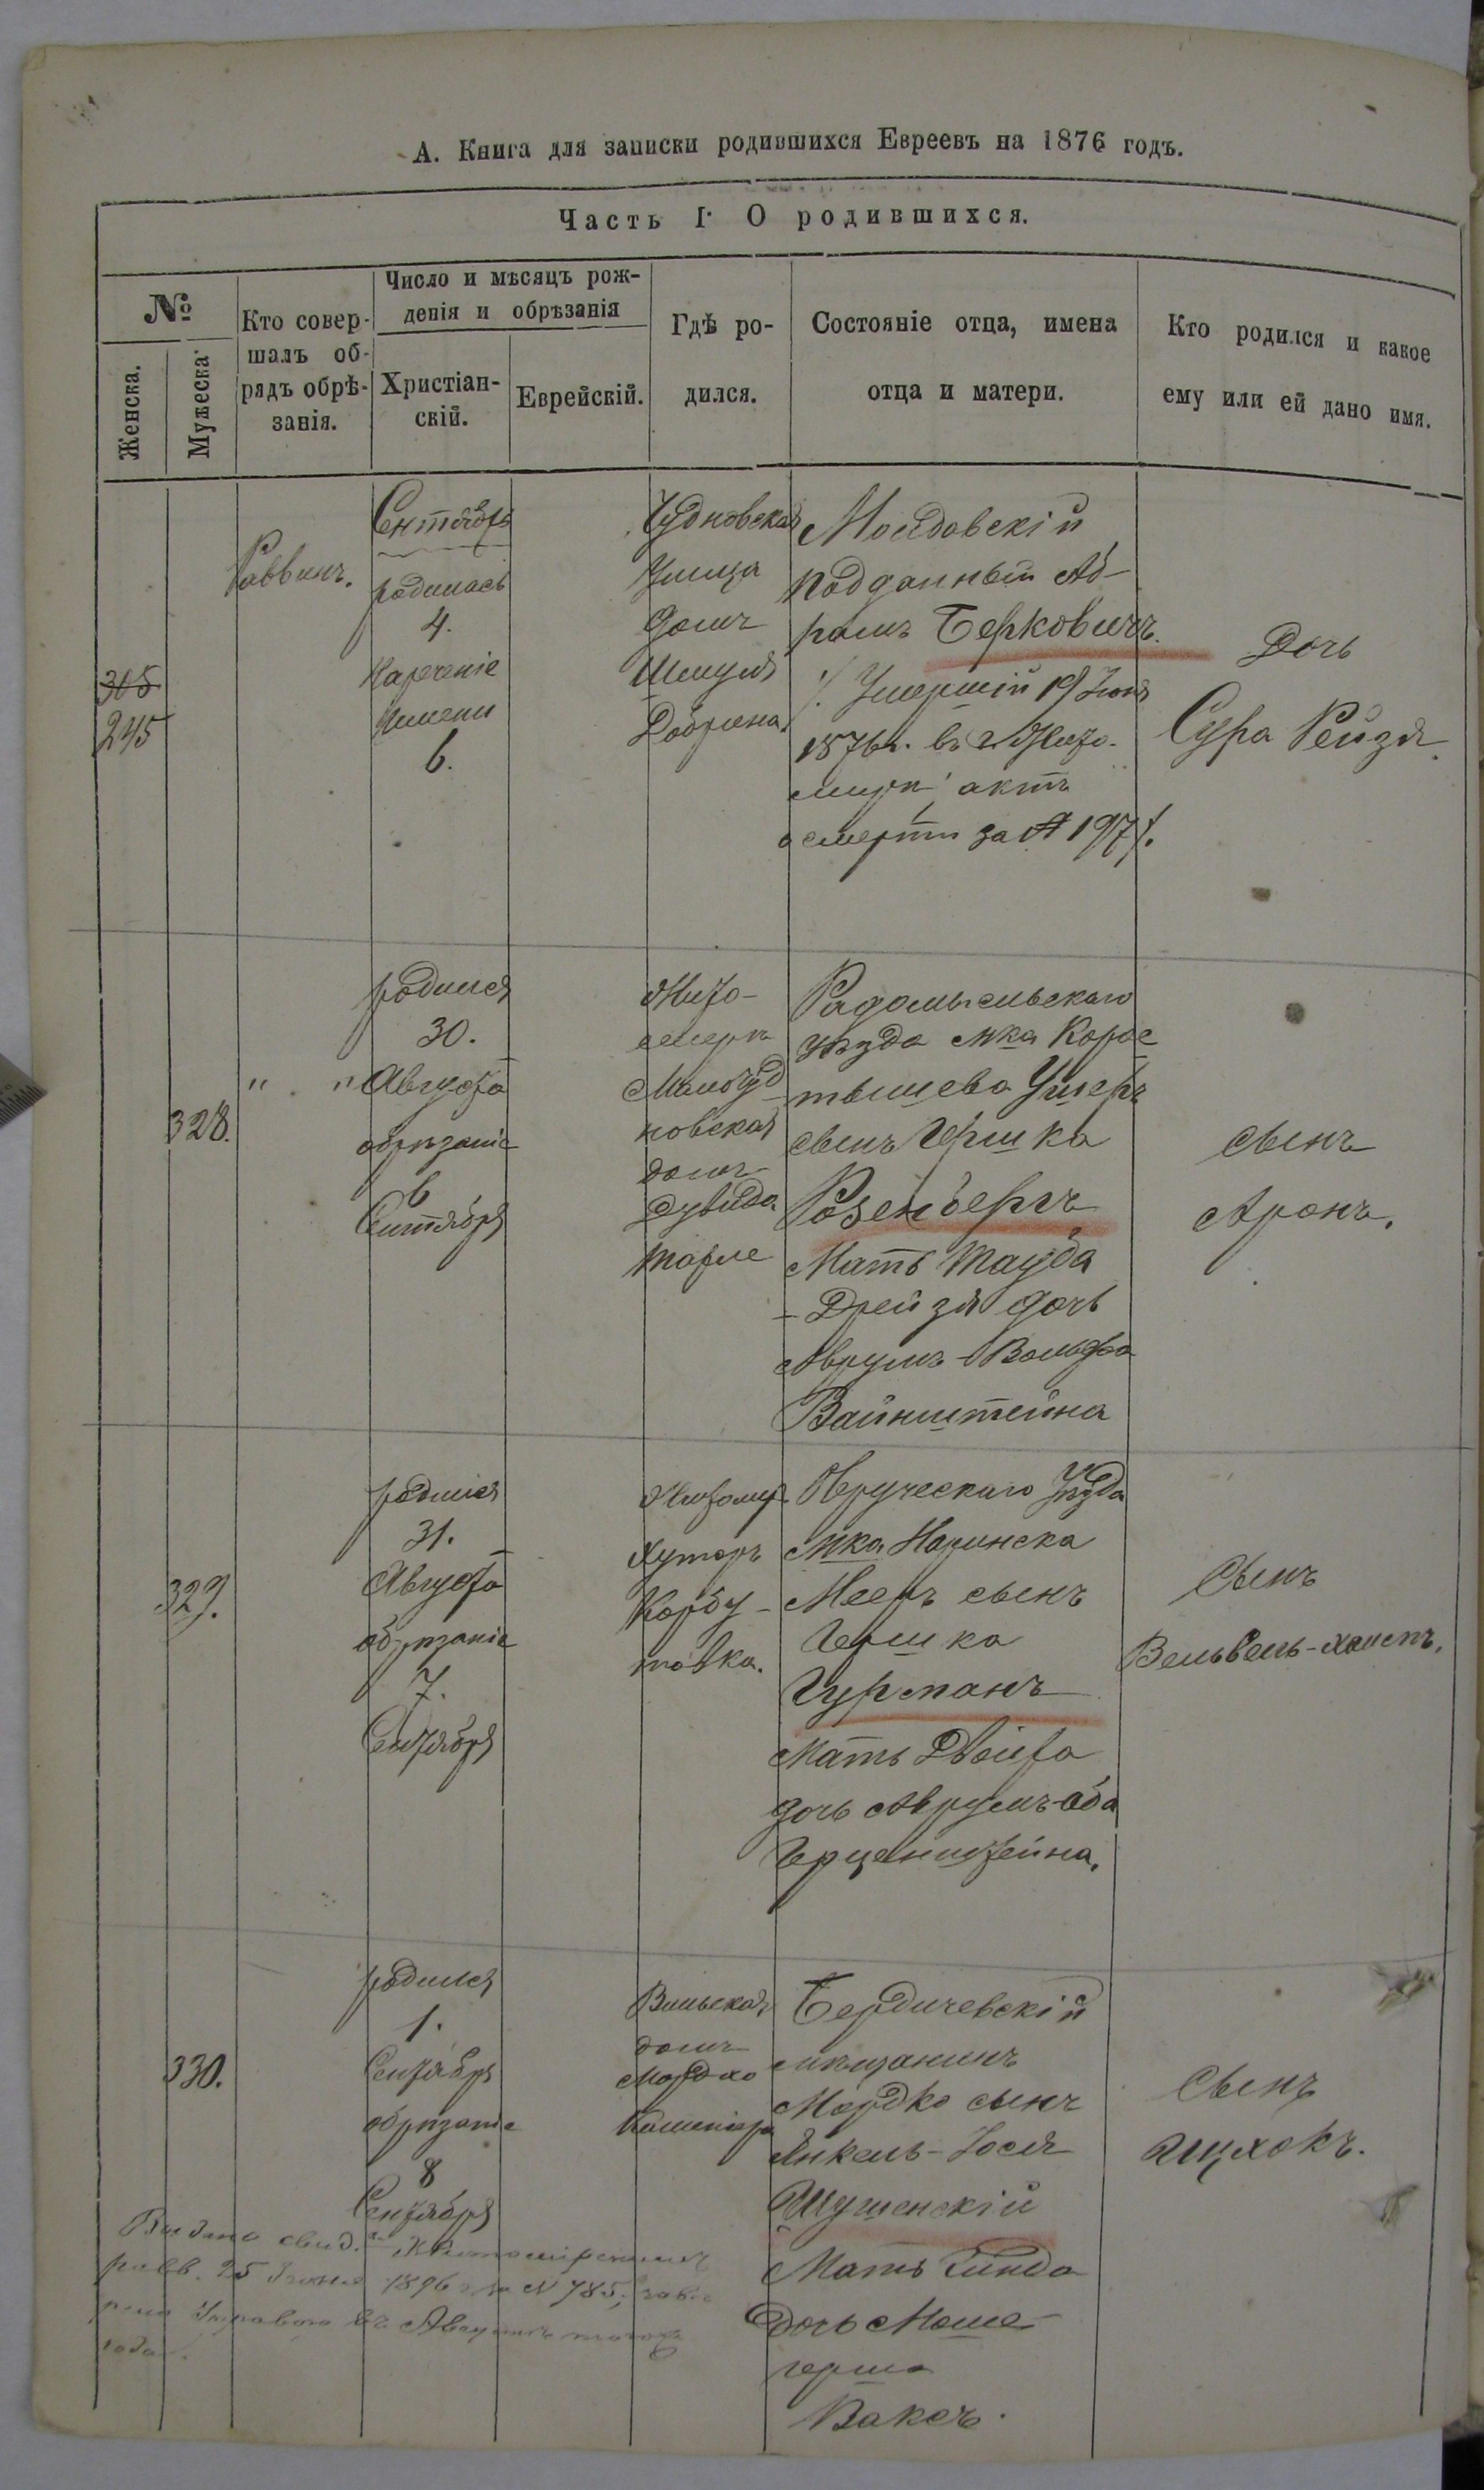 А. Книга для записки родившихся Евреевъ на 1876 годъ.
Часть I. О родившихся.
№
Женска.
Мужеска
Кто совер-
шалъ об-
рядъ обрѣ-
занія.
Число и мѣсяцъ рож-
денія и обрѣзанія
Христіан-
скій.
Еврейскій.
Гдѣ ро-
дился.
Состояніе отца, имена
отца и матери.
Кто родился и какое
ему или ей дано имя.
305
245
Раввинъ.
Сентября
родилась
4.
Нареченіе
имени
6.
Чудновская
Улица
домъ
Шмуля
Добрина
Молдовскій
подданный Аб-
рамъ Берковичъ.
/. Умершій 19 Іюня
1876 г. въ г. Жито-
мирѣ, актъ
о смерти за № 197 /.
Дочь
Сура Рейзя.
328.
" "
родился
30.
Августа
обрѣзаніе
6
Сентября
Жито-
миръ
Малочуд-
новская
домъ
Дувида
Радомысльскаго
уѣзда м-ка Коросс
тышева Ушеръ
сынъ Гершка
Розенбергъ
Мать Тауба
-Дрейзя дочь
Аврумъ-Вольфа
Вайнштейна
сынъ
Аронъ.
329.
родился
31.
Августа
обрѣзаніе
7.
Сентября
Житомир.
Хуторъ
Корбу-
товка.
Овручскаго Уѣзда
м-ка Наринска
Мееръ сынъ
Гершка
Гурманъ
Мать Двойра
дочь Аврумъ-Аба
Герценштейна.
Сынъ
Вельвель-
330.
родился
1.
Сентября
обрѣзаніе
8
Сентября
Вильская
домъ
Мордко
Бердичевскій
мѣщанинъ
Мордко сынъ
Янкель-Іося
Шушенскій
Мать Гинда
дочь Моше-
герша
Ваксъ.
Сынъ
Ицхокъ.
Выдано свид. Житомірскимъ
равв. 25 Іюня 1896 г. за № 785,
Управою въ Августѣ того же
года.